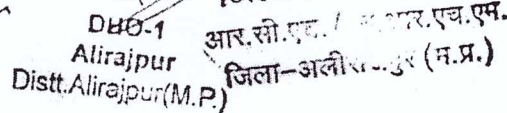 DHO-1
Alirajpur
Distt.Alirajpur(M.P.)
आर.सी.एच. / आर.एच.एम.
जिला-अलीराजपुर (म.प्र.)